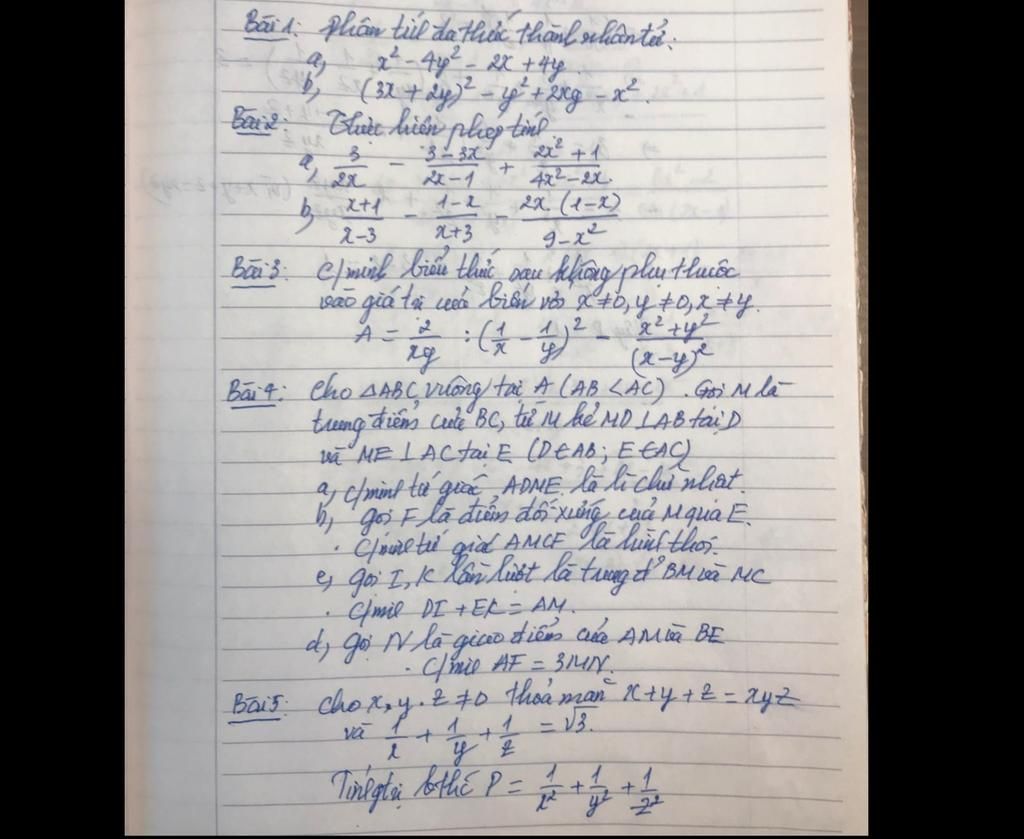 Bài 1: Phân tích đa thức thành nhân tử:
a, x² - 4y² - 2x + 4y.
b, (3x + 2y)² - y² + 2xy - x².
Bài 2: Thực hiện phép tính.
a, 3/2x - (3-3x)/(2x-1) + (2x²+1)/(4x²-2x).
b, (x+1)/(x-3) - (1-x)/(x+3) - 2x.(1-x)/(9-x²)
Bài 3: C/minh biểu thức sau không phụ thuộc
vào giá trị của biến với x≠0, y≠0, x≠y.
A = 2/xy : (1/x - 1/y)² - (x²+y²)/(x-y)²
Bài 4: Cho △ABC vuông tại A (AB < AC). Gọi M là
trung điểm của BC, từ M kẻ MD⊥AB tại D
và ME⊥AC tại E (D∈AB; E∈AC)
a, C/minh tứ giác ADME là h chữ nhật.
b, gọi F là điểm đối xứng của M qua E.
. C/minh tứ giác AMCF là hình thoi.
c, gọi I, K lần lượt là trung đ' BM và MC
. C/minh DI + EK = AM.
d, gọi N là giao điểm của AM và BE
. C/minh AF = 3MN.
Bài 5: Cho x,y.z≠0 thoả mãn x+y+z = xyz
và 1/x + 1/y + 1/z = √3.
Tính giá trị b thức P = 1/x² + 1/y² + 1/z²